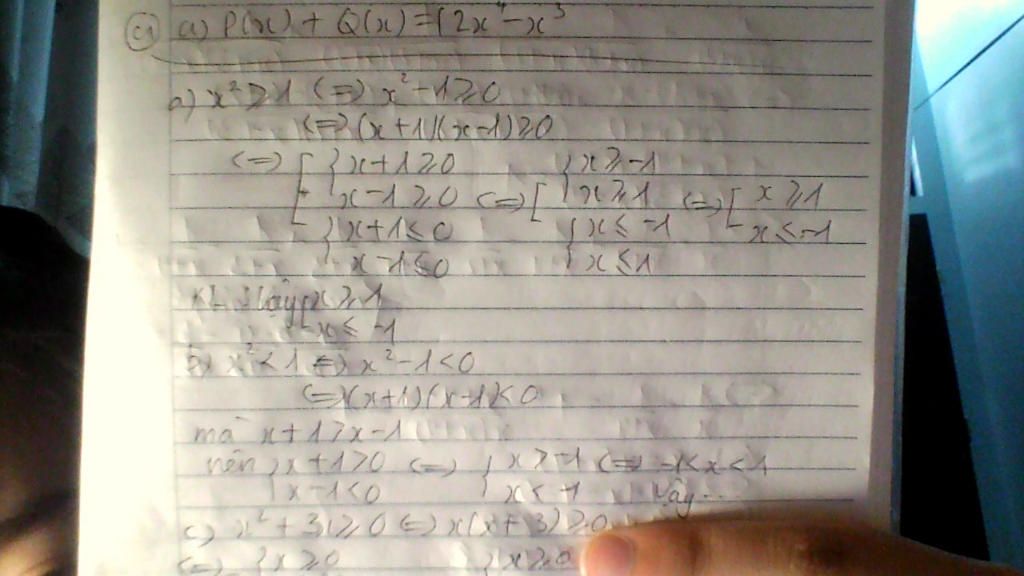 a) P(x) + Q(x) = (2x⁴ - x³
a) x² ≥ 1 <=> x² - 1 ≥ 0
<=> (x + 1)(x - 1) ≥ 0
<=> [ { x + 1 ≥ 0 { x ≥ -1
x - 1 ≥ 0 <=> [ x ≥ 1 <=> [ x ≥ 1
{ x + 1 ≤ 0 { x ≤ -1 x ≤ -1
x - 1 ≤ 0 x ≤ 1
KL: Vậy [ x ≥ 1
x ≤ -1
b) x² < 1 <=> x² - 1 < 0
<=> (x + 1)(x - 1) < 0
mà x + 1 > x - 1
nên { x + 1 > 0 <=> { x > -1 <=> -1 < x < 1
x - 1 < 0 x < 1 Vậy...
c) x² + 3x ≥ 0 <=> x(x + 3) ≥ 0
<=> { x ≥ 0 { x ≥ 0